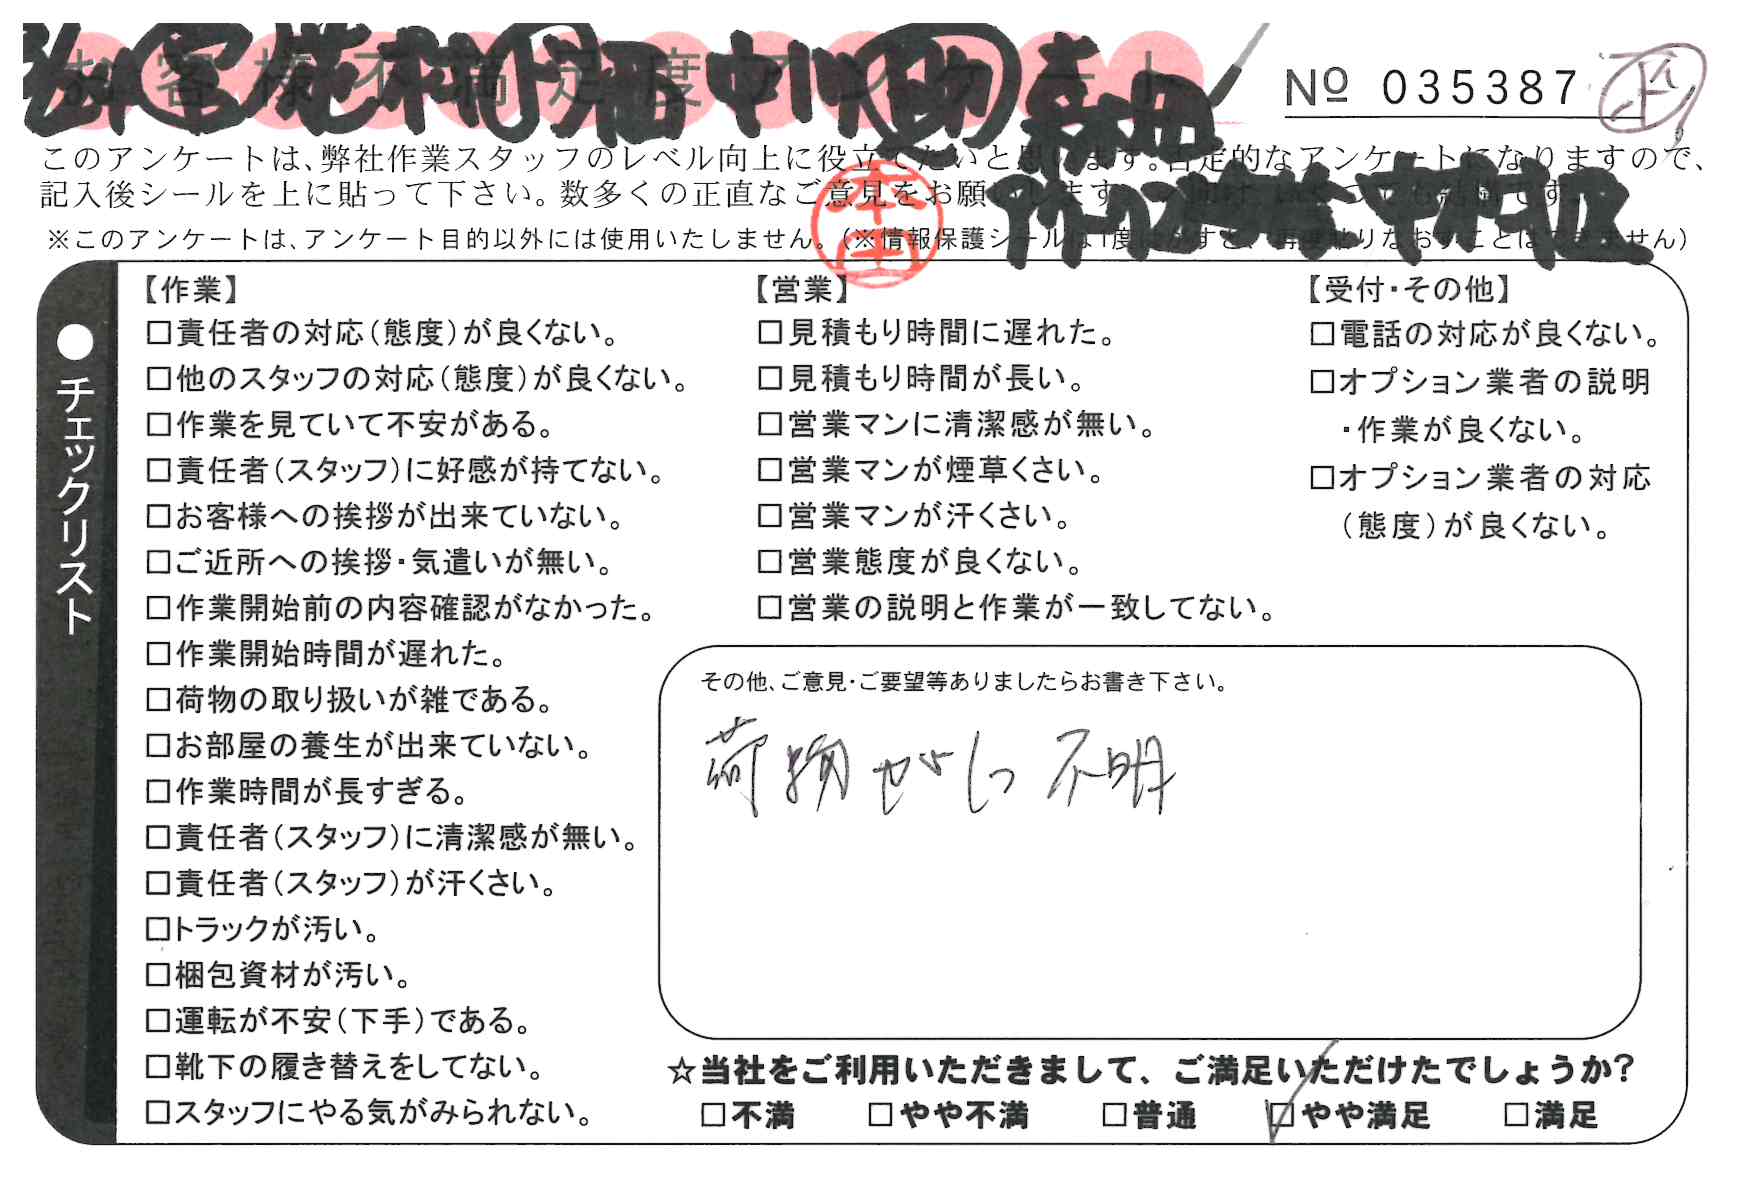 お客様不満足度アンケート
№ 035387
このアンケートは、弊社作業スタッフのレベル向上に役立てたいと思います。否定的なアンケートになりますので、
記入後シールを上に貼って下さい。数多くの正直なご意見をお願いします
※このアンケートは、アンケート目的以外には使用いたしません。(※情報保護シールは1度はがすと、再度貼りなおすことはできません)
チェックリスト
【作業】
□責任者の対応(態度)が良くない。
□他のスタッフの対応(態度)が良くない。
□作業を見ていて不安がある。
□責任者(スタッフ)に好感が持てない。
□お客様への挨拶が出来ていない。
□ご近所への挨拶・気遣いが無い。
□作業開始前の内容確認がなかった。
□作業開始時間が遅れた。
□荷物の取り扱いが雑である。
□お部屋の養生が出来ていない。
□作業時間が長すぎる。
□責任者(スタッフ)に清潔感が無い。
□責任者(スタッフ)が汗くさい。
□トラックが汚い。
□梱包資材が汚い。
□運転が不安(下手)である。
□靴下の履き替えをしてない。
□スタッフにやる気がみられない。
【営業】
□見積もり時間に遅れた。
□見積もり時間が長い。
□営業マンに清潔感が無い。
□営業マンが煙草くさい。
□営業マンが汗くさい。
□営業態度が良くない。
□営業の説明と作業が一致してない。
【受付・その他】
□電話の対応が良くない。
□オプション業者の説明
・作業が良くない。
□オプション業者の対応
(態度)が良くない。
その他、ご意見・ご要望等ありましたらお書き下さい。
荷物 不明
☆当社をご利用いただきまして、ご満足いただけたでしょうか?
□不満 □やや不満 □普通 □やや満足 □満足